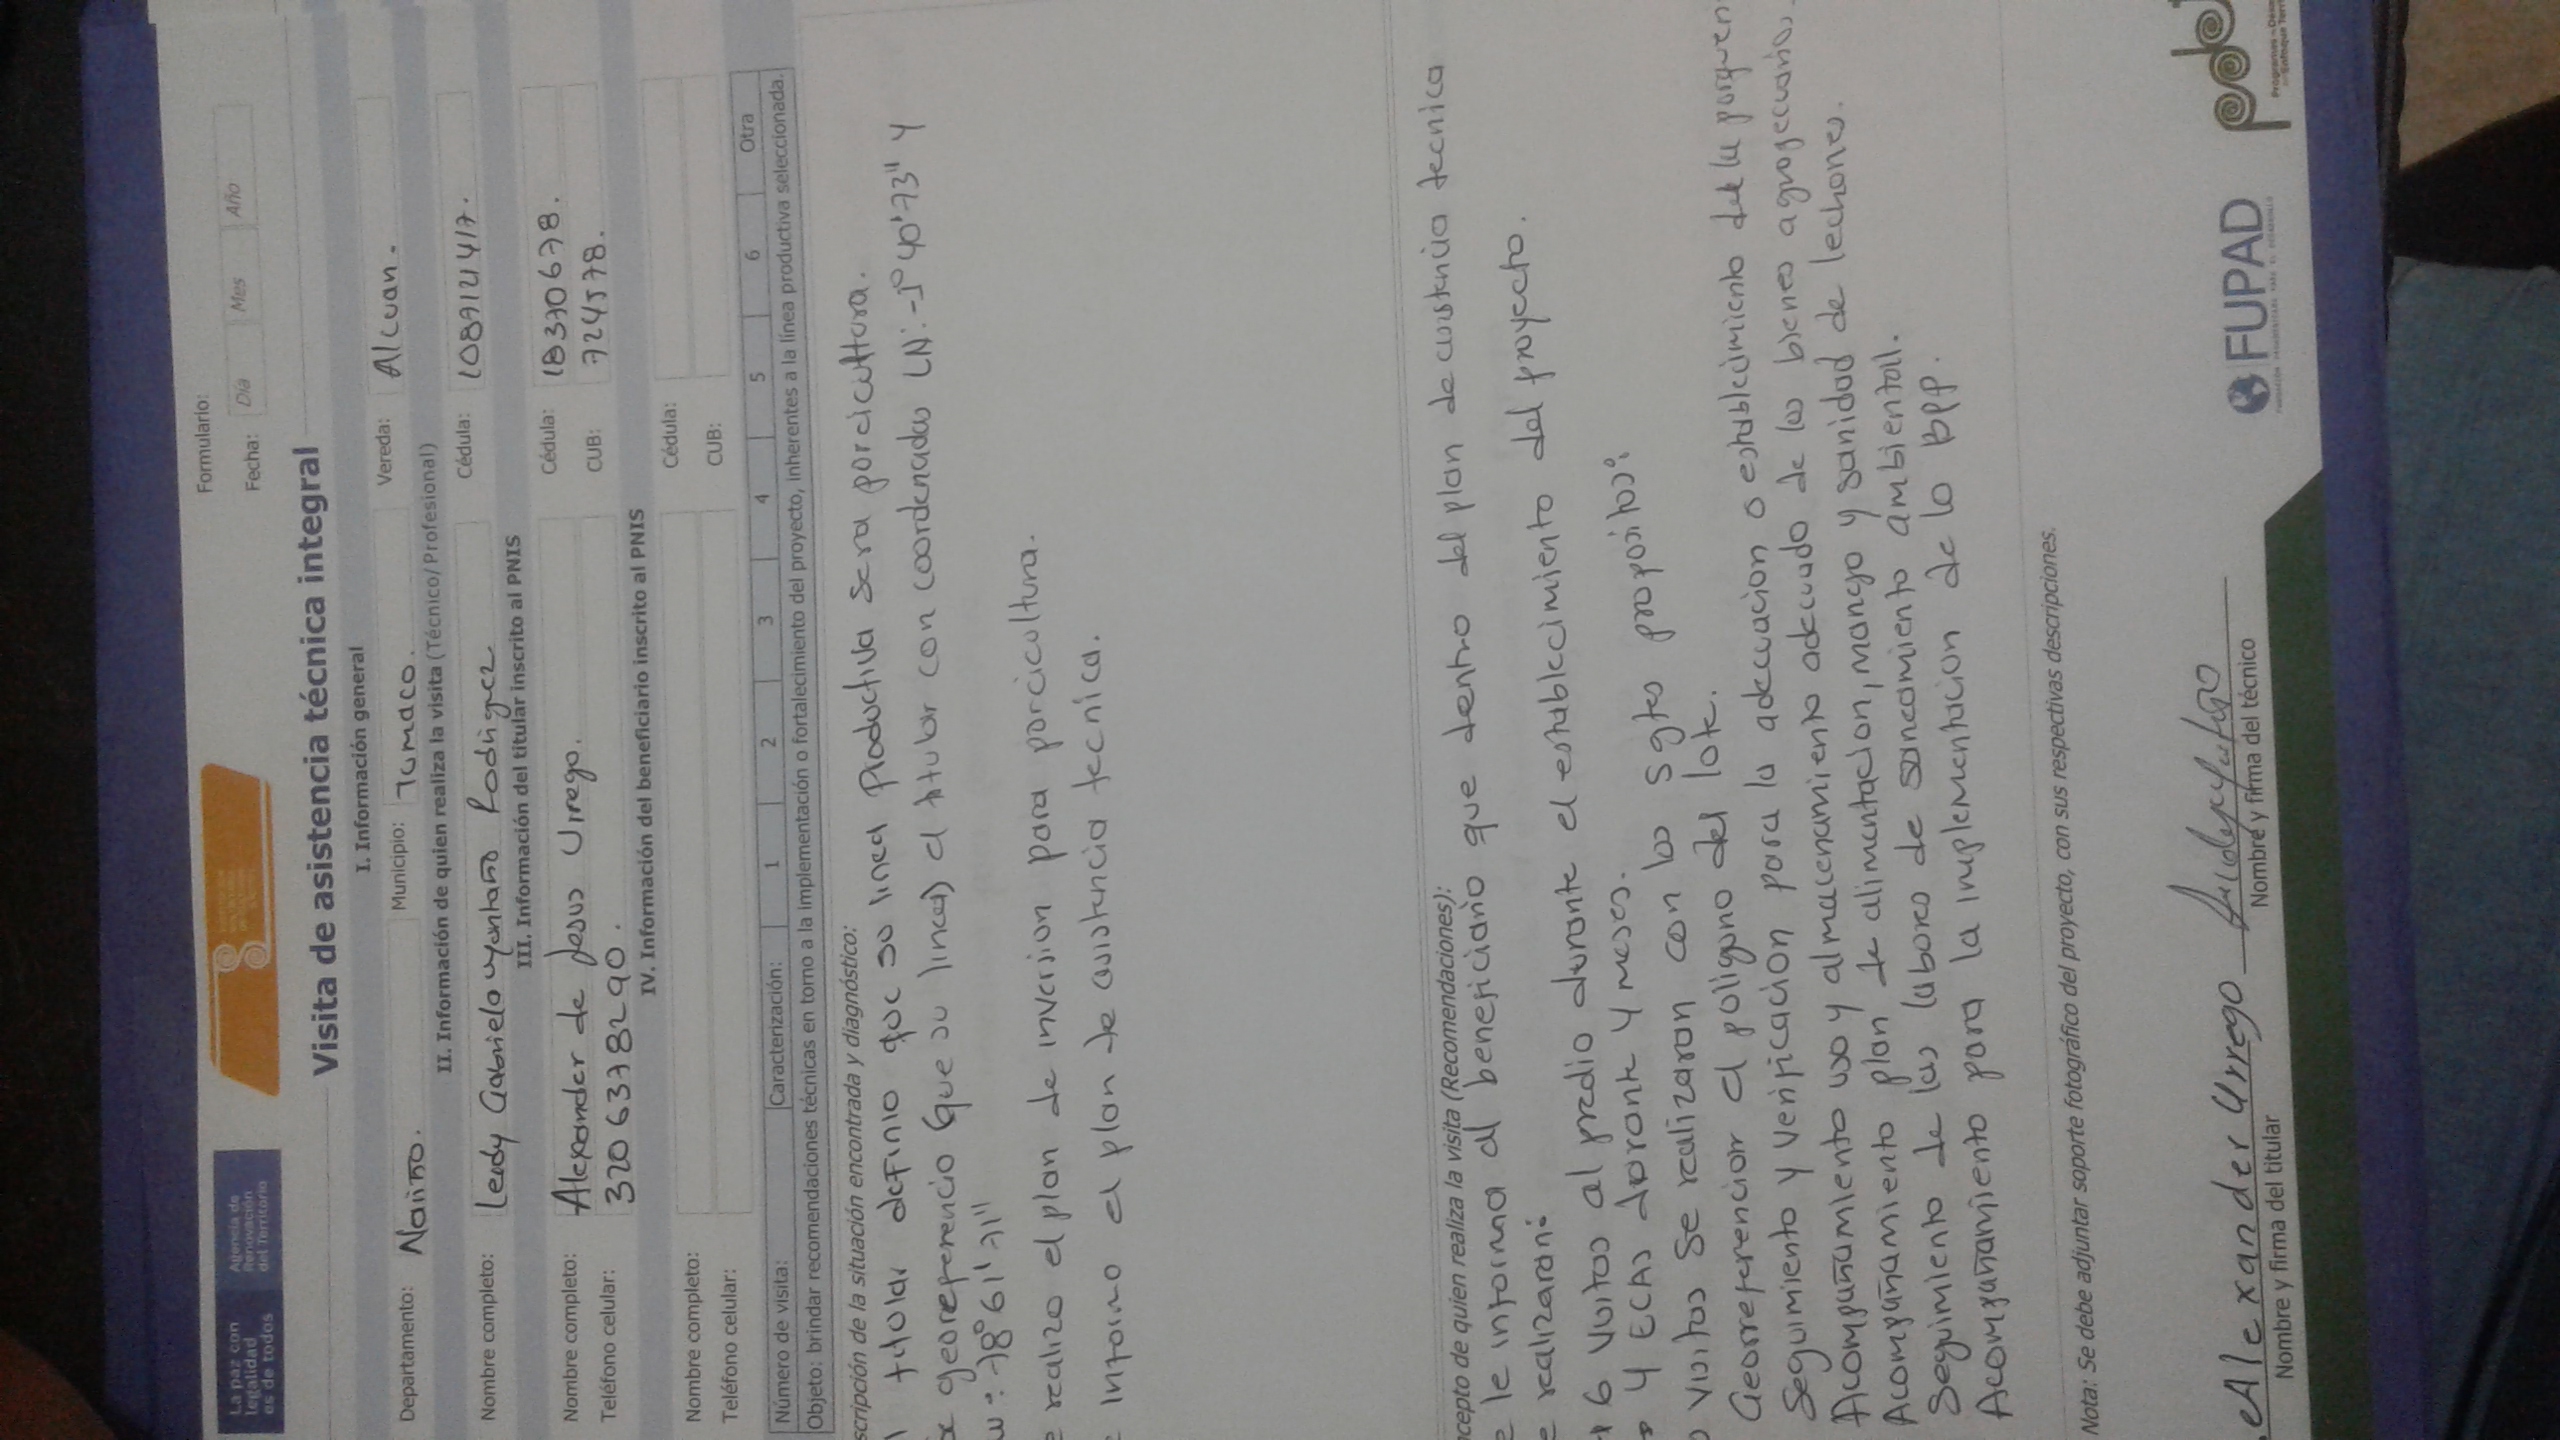 La paz con
legalidad
es de todos
Agencia de
Renovación
del Territorio
Formulario:
Fecha: Día Mes Año
Visita de asistencia técnica integral
I. Información general
Departamento: Nariño. Municipio: Tumaco. Vereda: Alcuan.
II. Información de quien realiza la visita (Técnico/Profesional)
Nombre completo: Leidy Gabriela Montaño Rodriguez Cédula: 1089124417.
III. Información del titular inscrito al PNIS
Nombre completo: Alexander de Jesus Urrego. Cédula: 18370678.
Teléfono celular: 3206378290. CUB: 724578.
IV. Información del beneficiario inscrito al PNIS
Nombre completo: Cédula:
Teléfono celular: CUB:
Número de visita: Caracterización: 1 2 3 4 5 6 Otra
Objeto: brindar recomendaciones técnicas en torno a la implementación o fortalecimiento del proyecto, inherentes a la línea productiva seleccionada.
scripción de la situación encontrada y diagnóstico:
l titular definio que su linea Productiva sera porcicultura.
se georeferencio (que su linea) el titular con coordenadas LN:-1°40'73" y
w: 78°61'71"
e realizo el plan de inversion para porcicultura.
e Informo el plan de asistencia tecnica.
ncepto de quien realiza la visita (Recomendaciones):
e le informa al beneficiario que dentro del plan de asistencia tecnica
e realizaran:
6 visitas al predio durante el establecimiento del proyecto.
4 ECAs durante 4 meses.
visitas Se realizaran con los sgtes propositos:
Georreferenciar el poligono del lote.
Seguimiento y verificacion para la adecuacion o establecimiento de la porquen
Acompañamiento uso y almacenamiento adecuado de los bienes agropecuarios.
Acompañamiento plan de alimentacion, manejo y sanidad de lechones.
Seguimiento de las labores de saneamiento ambiental.
Acompañamiento para la implementacion de la BPP.
Nota: Se debe adjuntar soporte fotográfico del proyecto, con sus respectivas descripciones.
Alexander Urrego
Nombre y firma del titular
Nombre y firma del técnico
FUPAD
pdet